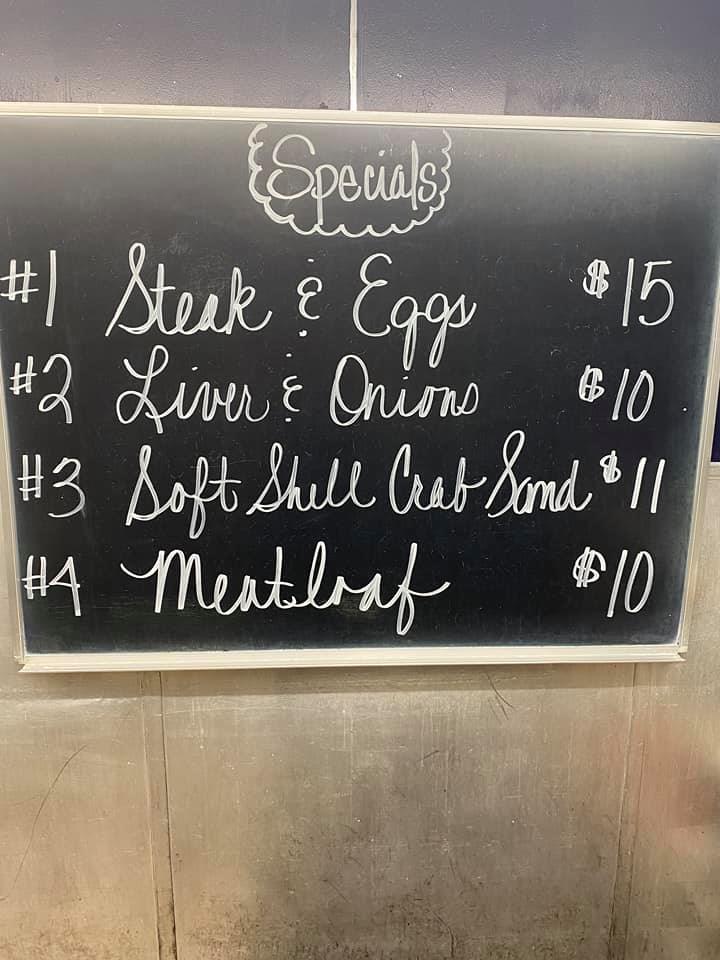 Specials
#1 Steak & Eggs $15
#2 Liver & Onions $10
#3 Soft Shell Crab Sand $11
#4 Meatloaf $10